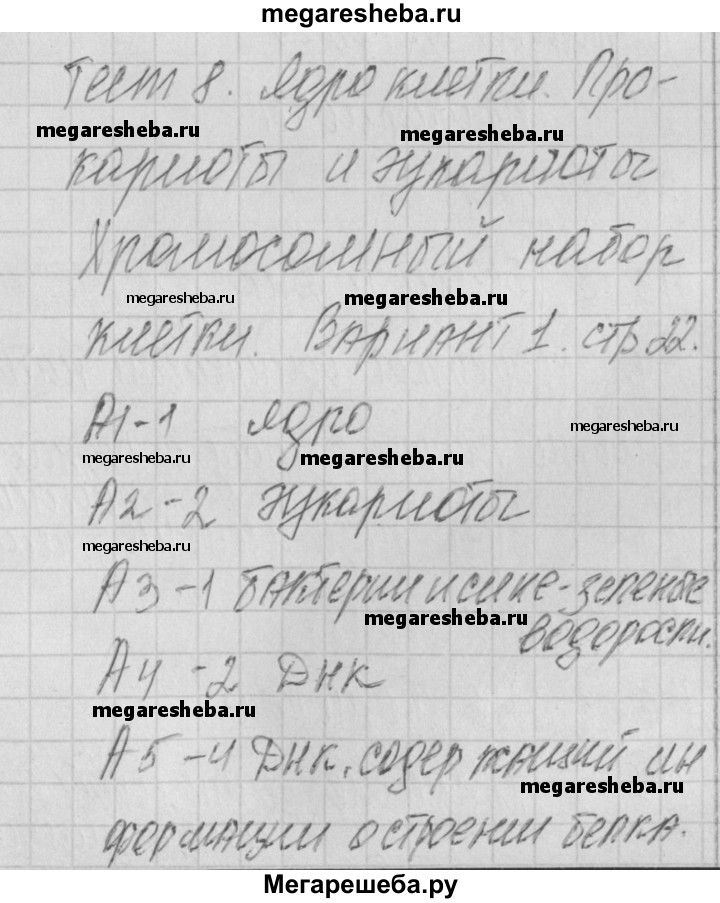 megaresheba.ru
Тест 8. Ядро клетки. Про-
megaresheba.ru megaresheba.ru
кариоты и эукариоты
Хромосомный набор
megaresheba.ru megaresheba.ru
клетки. Вариант 1. стр 22.
А1-1 ядро
megaresheba.ru
megaresheba.ru megaresheba.ru
А2-2 эукариоты
megaresheba.ru
А3-1 бактерии и сине-зеленые
megaresheba.ru
водоросли.
А4-2 ДНК
megaresheba.ru
А5-4 ДНК, содержащий ин
megaresheba.ru
формации о строении белка.
Мегарешеба.ру